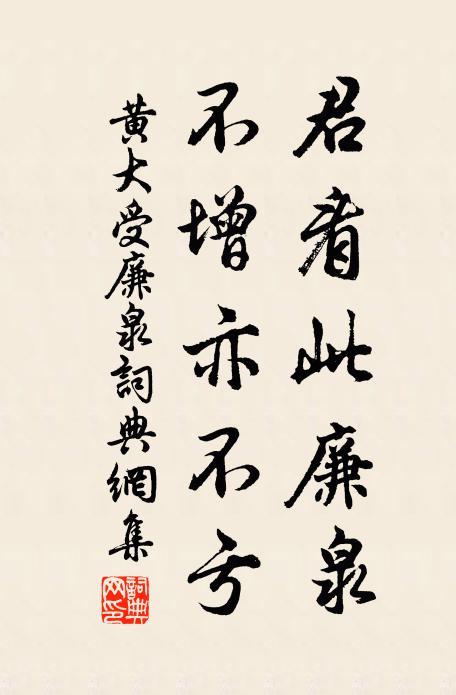 君看此廉泉
不增亦不亏
黄大受廉泉詞典網集
詞典
网印